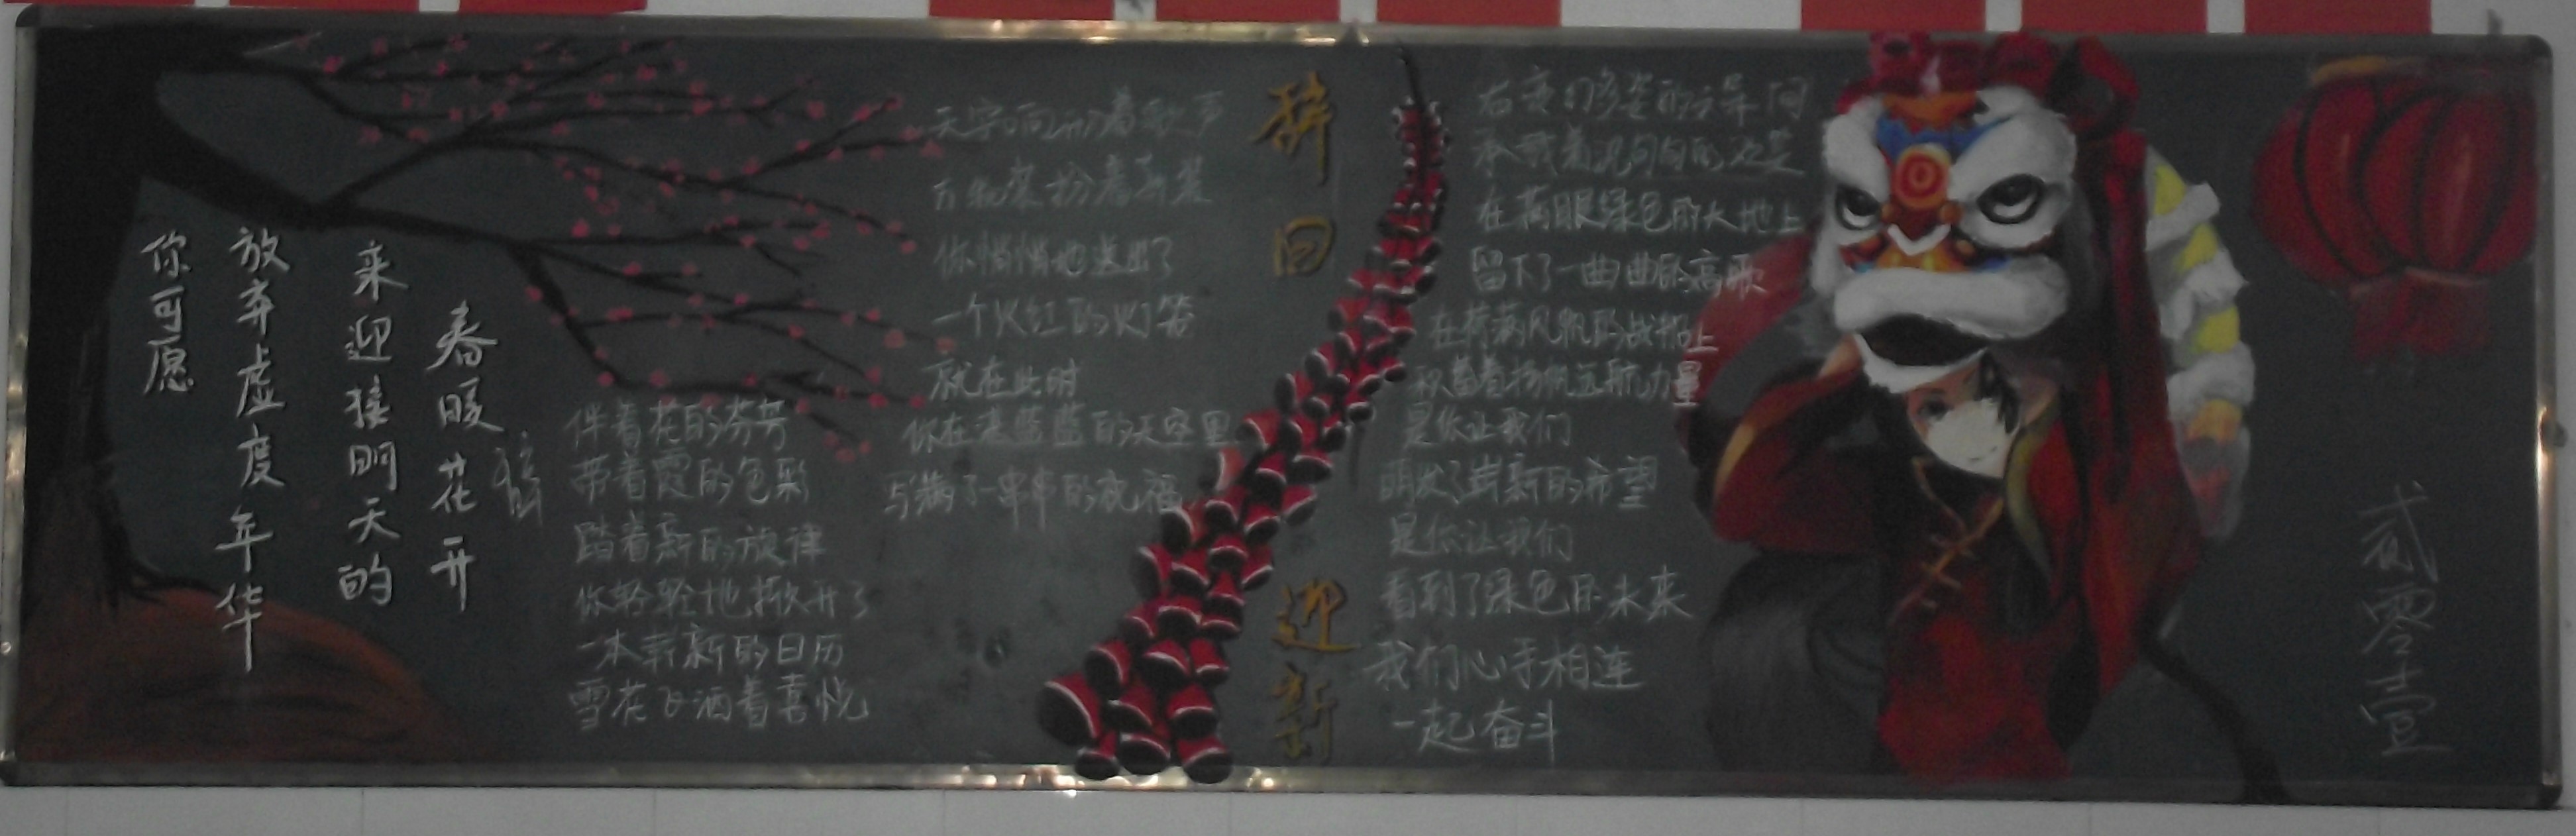 你可愿
放弃虚度年华
来迎接明天的
春暖花开
伴着花的芬芳
带着霞的色彩
踏着新的旋律
你轻轻地掀开了
一本崭新的日历
雪花飞洒着喜悦
天宇响彻着歌声
万物装扮着新装
你悄悄地送出了
一个火红的灯笼
就在此时
你在湛蓝蓝的天空里
写满了一串串的祝福
辞 回 迎新
在满眼绿色的大地上
留下了一曲曲的高歌
在荷满风帆的战船上
积蓄着扬帆远航力量
是你让我们
萌发了崭新的希望
是你让我们
看到了绿色的未来
我们心手相连
一起奋斗
贰零壹